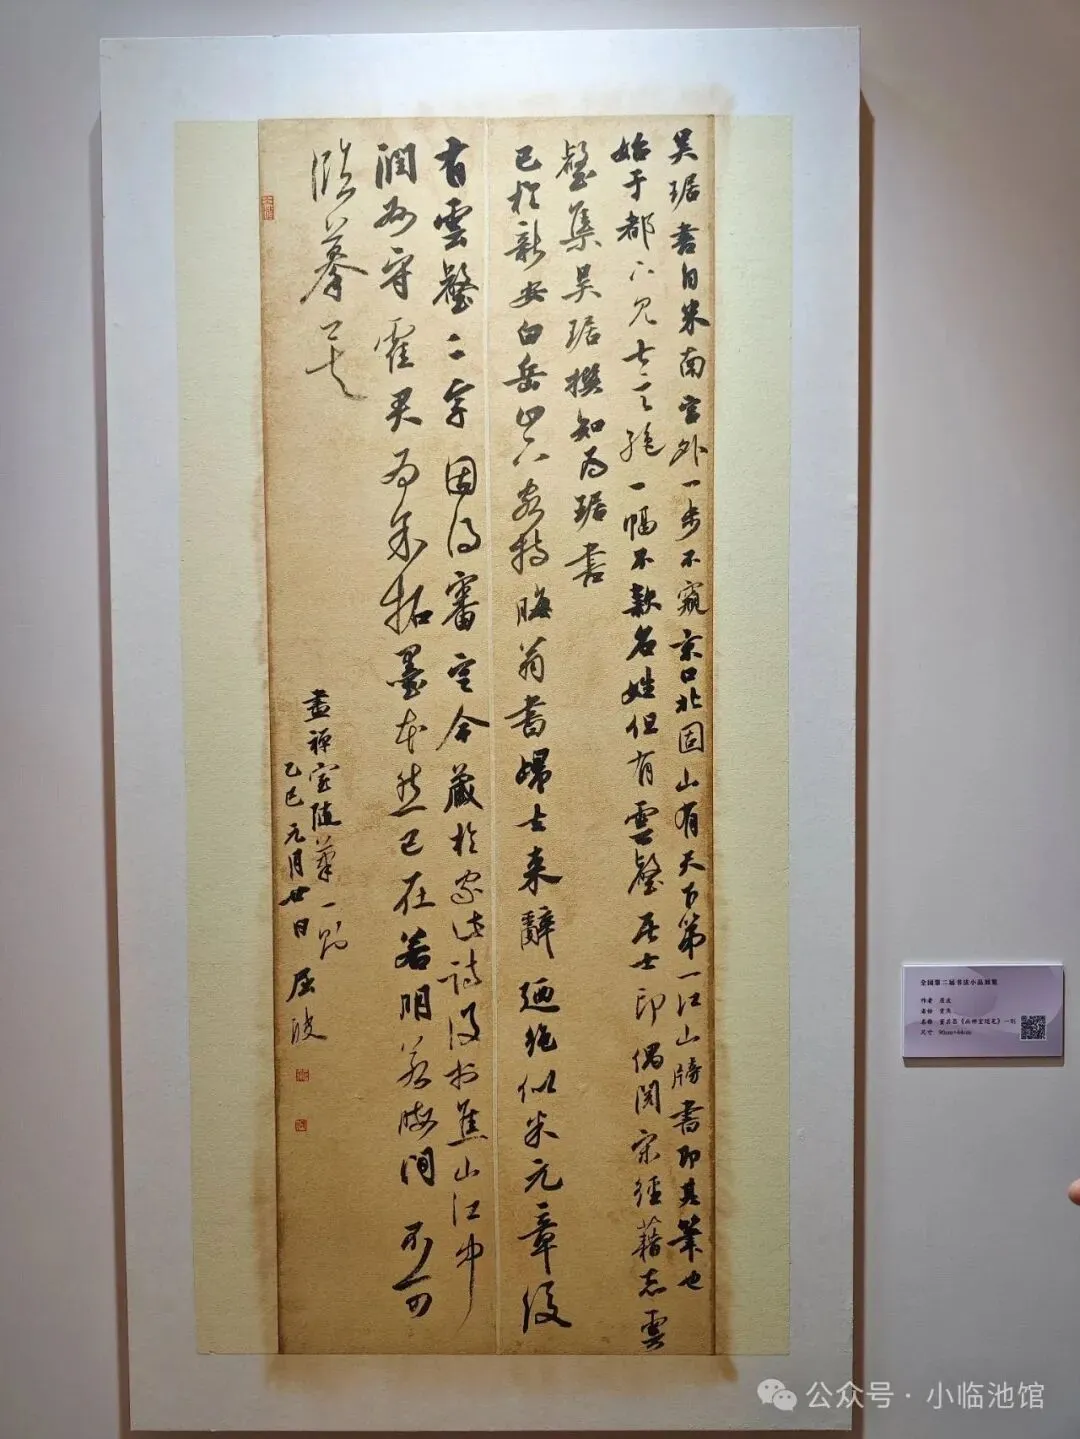 吴琚書自米南宫外一步不窺京口北固山有天下第一江山牓書即其筆也
始于都下見七言絶一幅不款名姓但有雲壑居士印偶閲宋經籍志雲
壑集吴琚撰知为琚書
已於新安白岳山下客持晦翁書歸去来辭廼絶似米元章後
有雲壑二字因得審定今藏於家此詩後書焦山江中
潤州守霍君为余拓墨本然已在若明若晦间不可
臨摹矣
畫禪室隨筆一則
乙巳元月廿日 屈波
全国第二届书法小品展览
作者 屈波
名称 董其昌《画禅室随笔》一则
尺寸 90cm×44cm
公众号·小临池馆